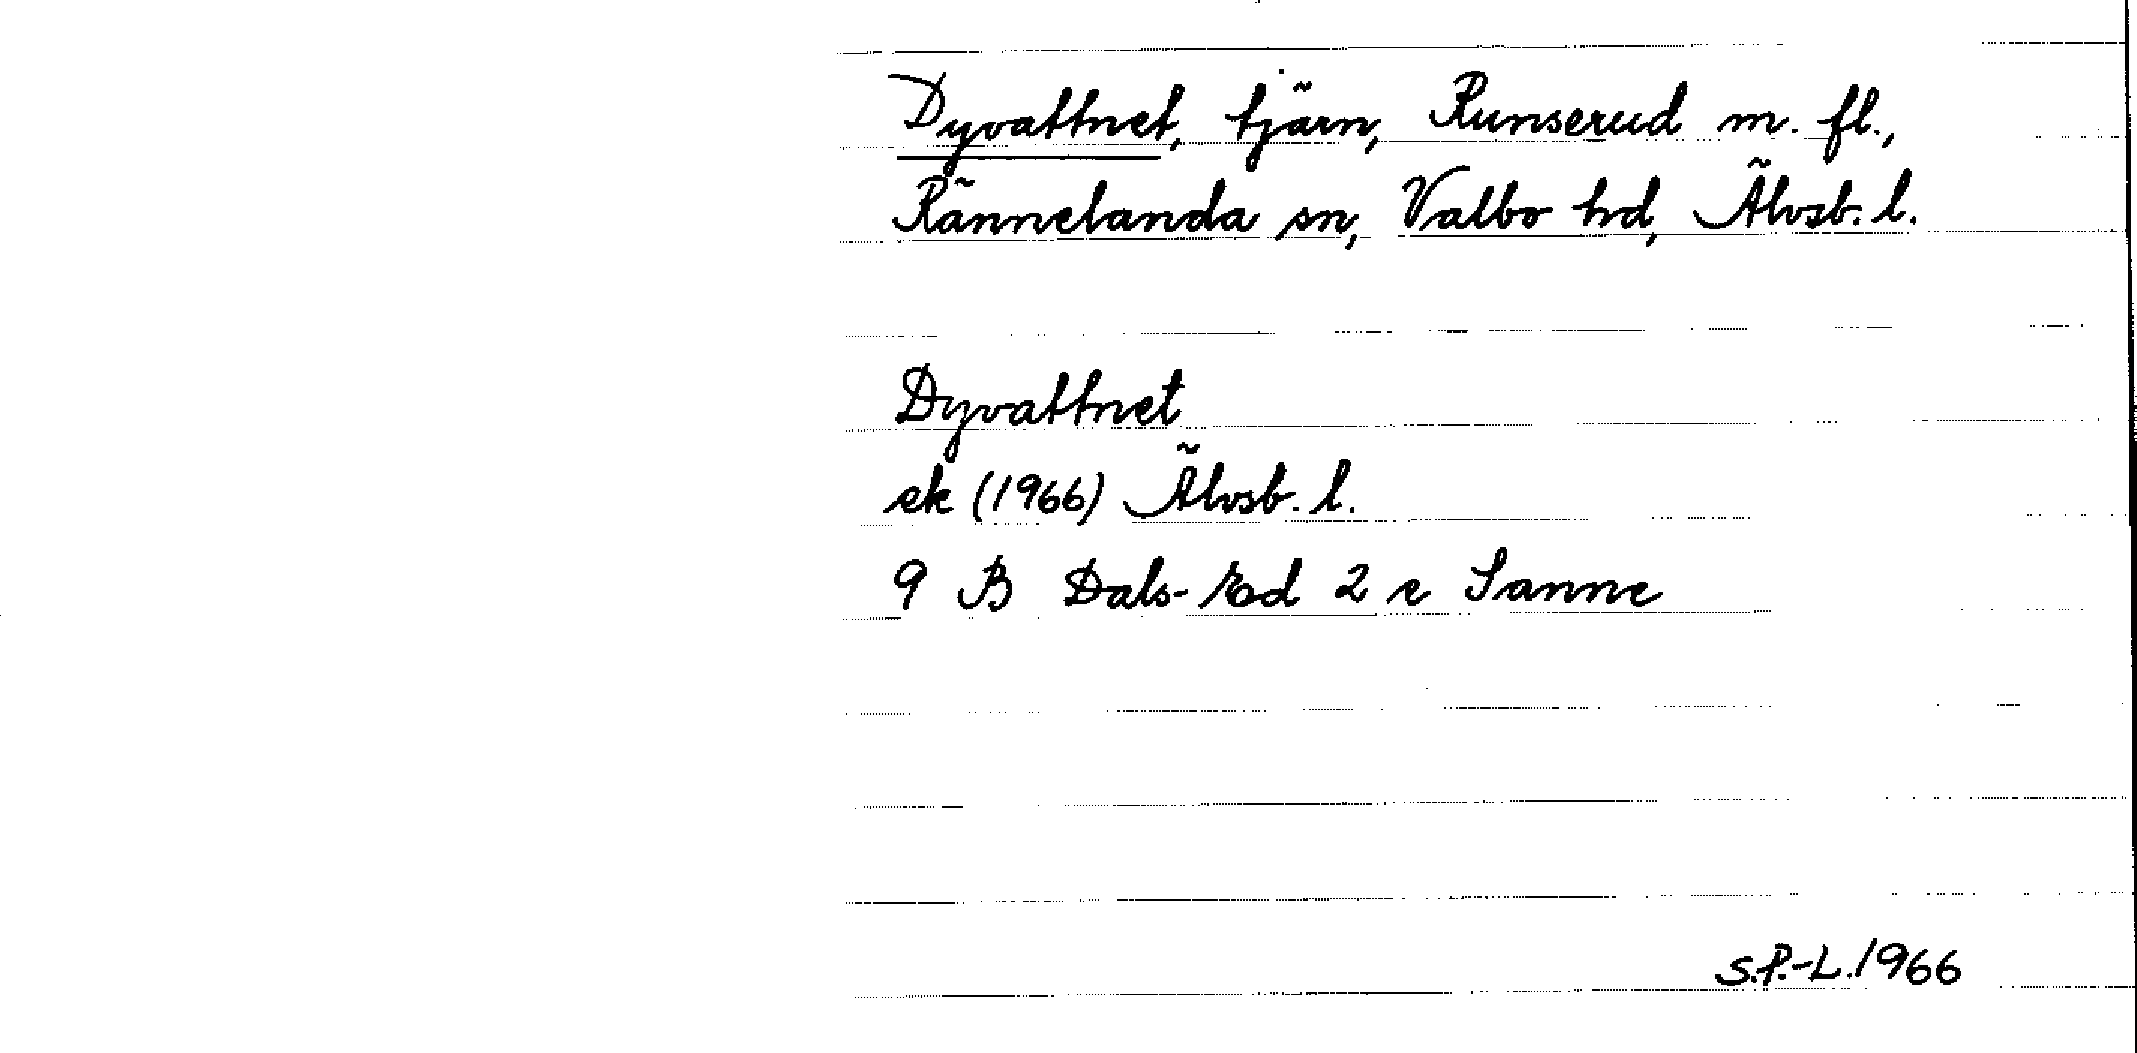 Dyvattnet, tjärn, Runserud m. fl.,
Rännelanda sn, Valbo hd, Älvsb. l.
Dyvattnet
ek (1966) Älvsb. l.
9 B Dals-Ed 2 e Sanne
S.P.-L. 1966